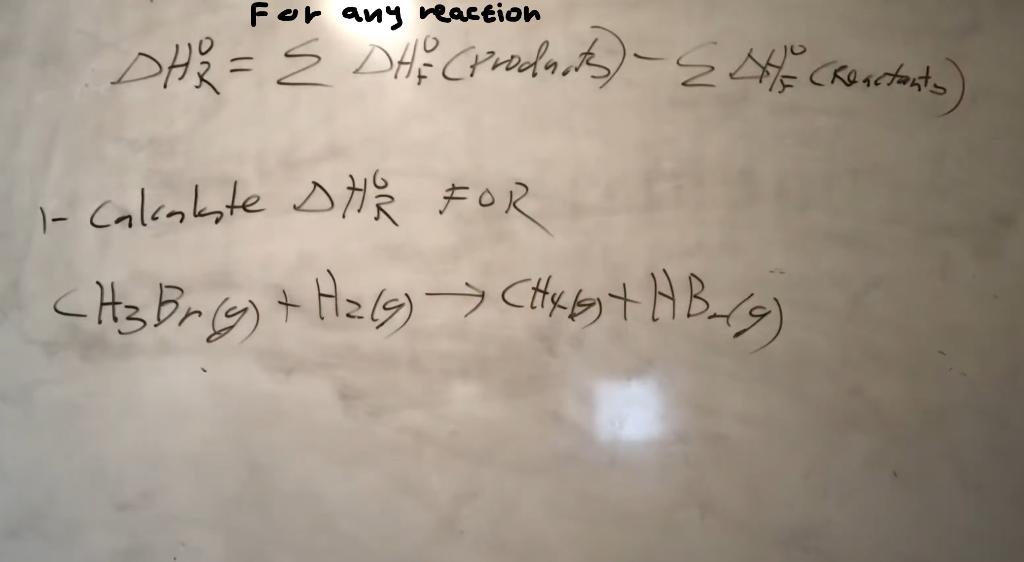 For any reaction
ΔH°R = Σ ΔH°F (Products) - Σ ΔH°F (Reactants)
1- Calculate ΔH°R FOR
CH3Br(g) + H2(g) → CH4(g) + HBr(g)